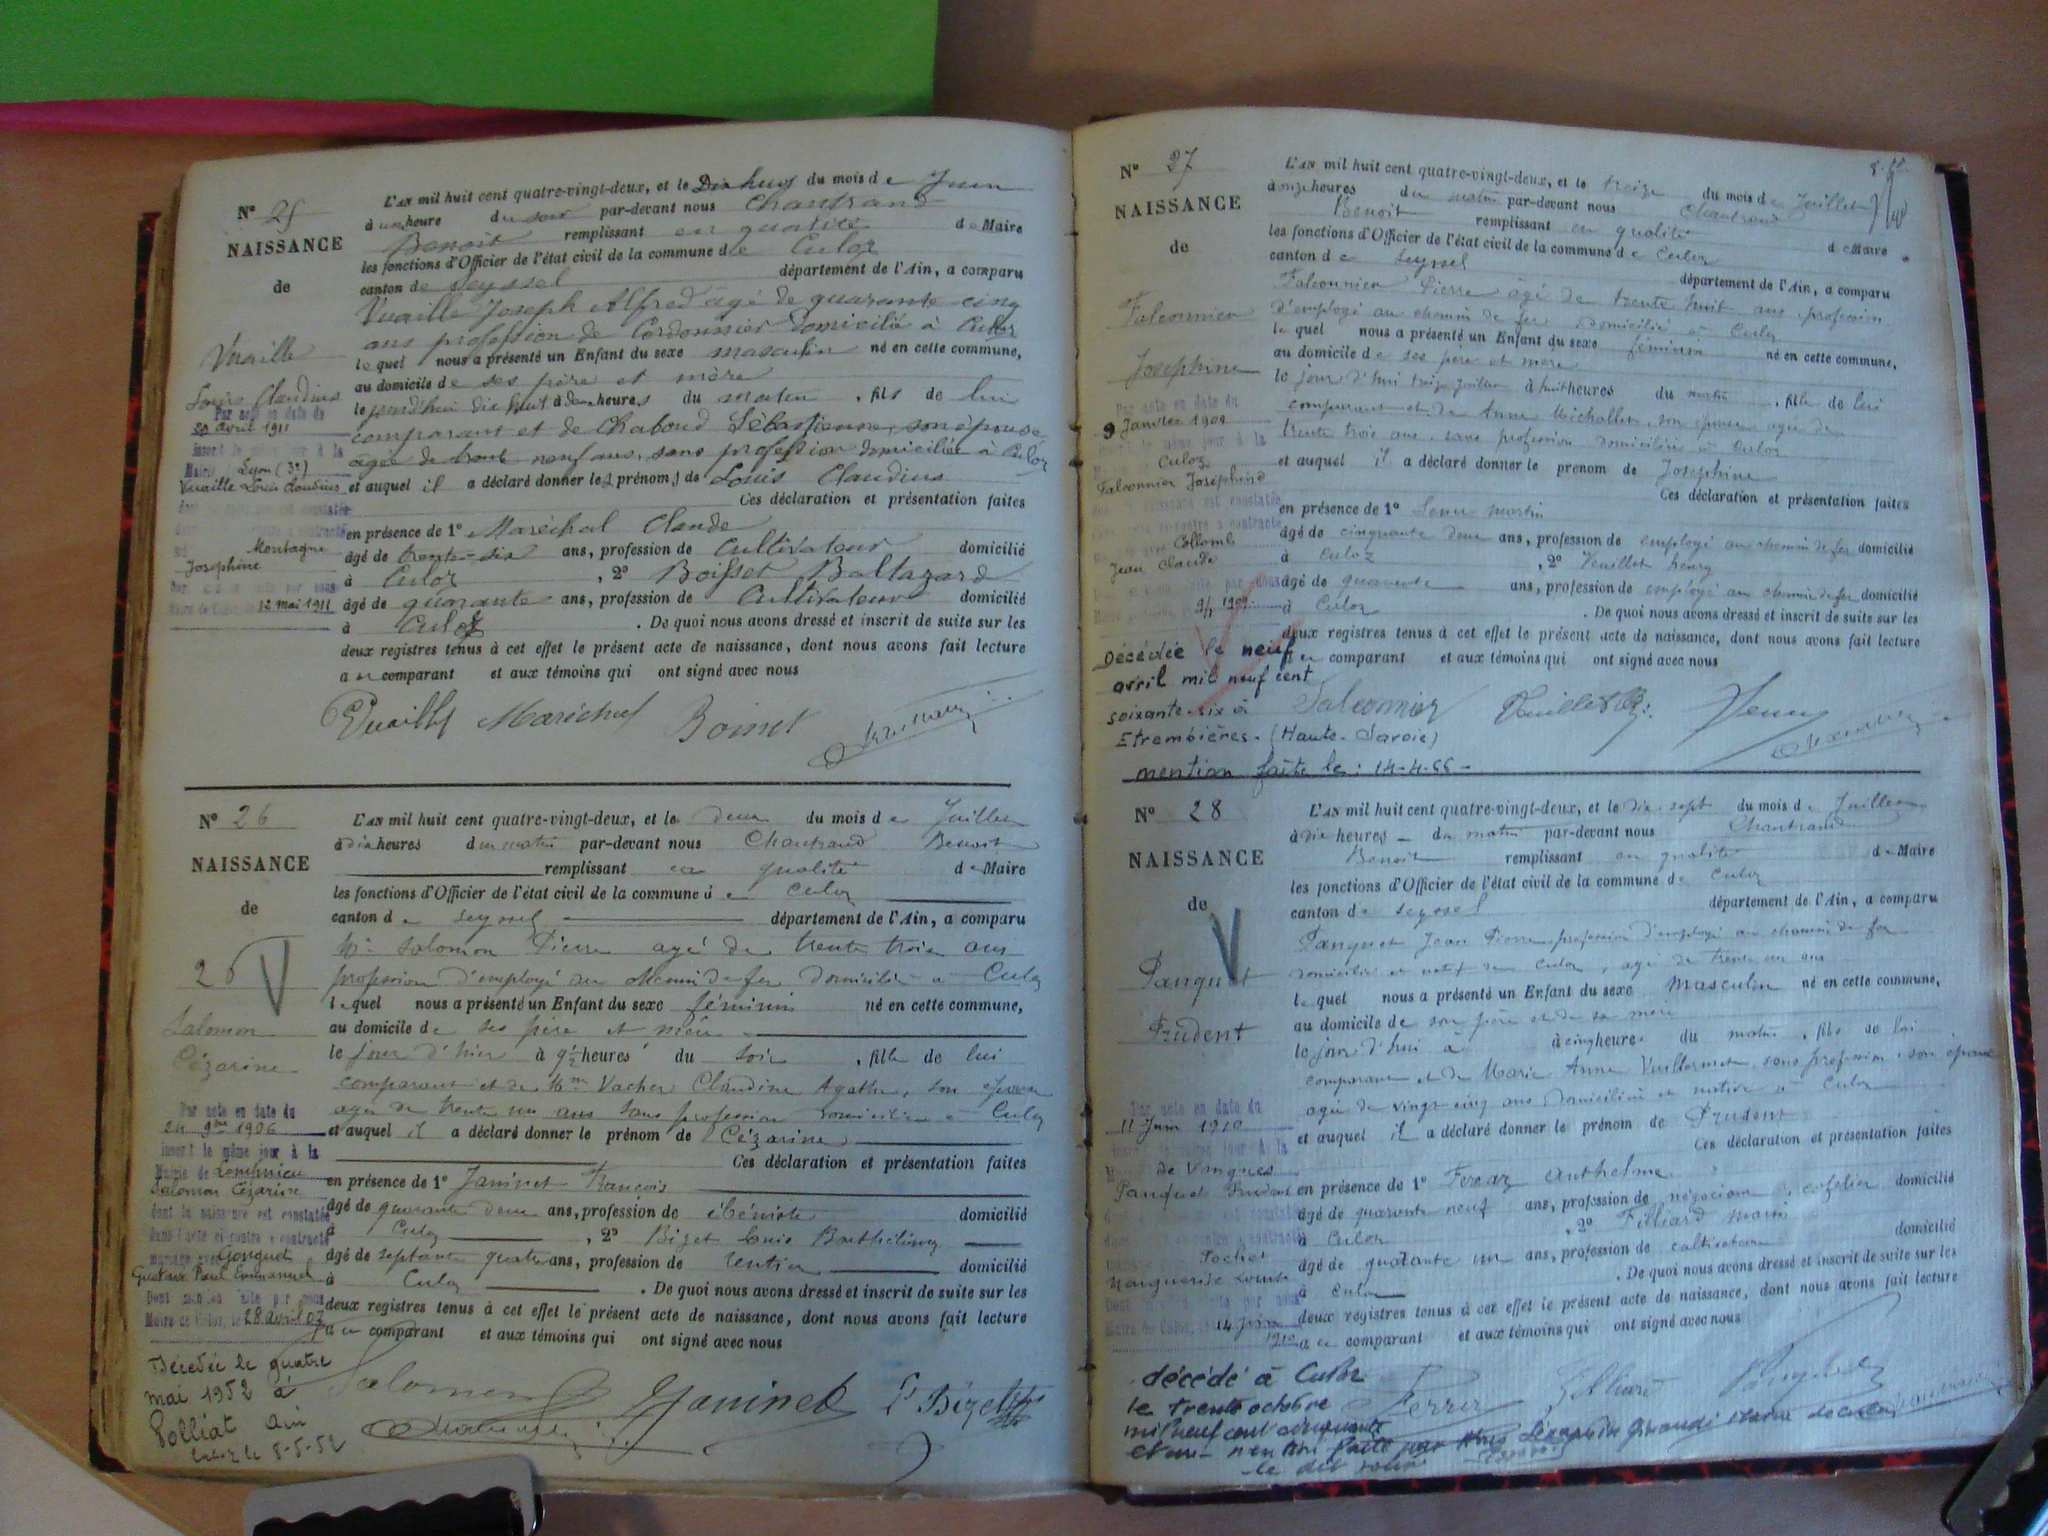 Nº 25
NAISSANCE
de
Vuaille
Louis Claudius
Par acte en date du
29 avril 1911
inscrit le même jour à la
Mairie de Lyon (3e)
Vuaille Louis Claudius
Montagne
Joséphine
12 mai 1911
L'AN mil huit cent quatre-vingt-deux, et le Dix huit du mois de Juin
à une heure du soir par-devant nous Chantrand
Benoit remplissant en qualité de Maire
les fonctions d'Officier de l'état civil de la commune de Culoz
canton de Seyssel département de l'Ain, a comparu
Vuaille Joseph Alfred âgé de quarante cinq
ans profession de Cordonnier domicilié à Culoz
lequel nous a présenté un Enfant du sexe masculin né en cette commune,
au domicile de ses père et mère
le jourd'hui dix huit à heures du matin, fils de lui
comparant et de Chaboud Sébastienne, son épouse
âgée de trente neuf ans, sans profession domiciliée à Culoz
et auquel il a déclaré donner les prénoms de Louis Claudius
Ces déclaration et présentation faites
en présence de 1º Maréchal Claude
âgé de trente-six ans, profession de Cultivateur domicilié
à Culoz, 2º Boisset Baltazard
âgé de quarante ans, profession de Cultivateur domicilié
à Culoz. De quoi nous avons dressé et inscrit de suite sur les
deux registres tenus à cet effet le présent acte de naissance, dont nous avons fait lecture
au comparant et aux témoins qui ont signé avec nous
Vuaille Maréchal
Nº 26
NAISSANCE
de
26
Salomon
Cézarine
Par acte en date du
24 9bre 1906
inscrit le même jour à la
Mairie de Lompnieu
Salomon Cézarine
dont la naissance est constatée
dans l'acte ci-contre a contracté
mariage avec Gonguet
Gustave Paul Emmanuel
Dont mention faite par nous
Maire de Culoz, le 28 avril 07
Décédée le quatre
mai 1952 à
Polliat Ain
Culoz le 8-5-52
L'AN mil huit cent quatre-vingt-deux, et le deux du mois de Juillet
à dix heures du matin par-devant nous Chantrand Benoit
remplissant en qualité de Maire
les fonctions d'Officier de l'état civil de la commune de Culoz
canton de Seyssel département de l'Ain, a comparu
Mr Salomon Pierre agé de trente trois ans
profession d'employé au chemin de fer domicilié à Culoz
lequel nous a présenté un Enfant du sexe féminin né en cette commune,
au domicile de ses père et mère
le jour d'hier à 9 1/2 heures du soir, fille de lui
comparant et de Mme Vacher Claudine Agathe, son épouse
agée de trente un ans sans profession domiciliée à Culoz
et auquel il a déclaré donner le prénom de Cézarine
Ces déclaration et présentation faites
en présence de 1º Janinet François
âgé de quarante deux ans, profession de ébéniste domicilié
à Culoz, 2º Bizet Louis Barthélemy
âgé de septante quatre ans, profession de rentier domicilié
à Culoz. De quoi nous avons dressé et inscrit de suite sur les
deux registres tenus à cet effet le présent acte de naissance, dont nous avons fait lecture
au comparant et aux témoins qui ont signé avec nous
Salomon Janinet L Bizet
Nº 27
NAISSANCE
de
Falconnier
Joséphine
Par acte en date du
9 Janvier 1909
Culoz
Falconnier Joséphine
Collomb
Jean Claude
Décédée le neuf
avril mil neuf cent
soixante-six à
Etrembières - (Haute-Savoie)
mention faite le : 14-4-66 -
L'AN mil huit cent quatre-vingt-deux, et le treize du mois de Juillet
à onze heures du matin par-devant nous Chantrand
Benoit remplissant en qualité de Maire
les fonctions d'Officier de l'état civil de la commune de Culoz
canton de Seyssel département de l'Ain, a comparu
Falconnier Pierre agé de trente huit ans profession
d'employé au chemin de fer domicilié à Culoz
lequel nous a présenté un Enfant du sexe féminin né en cette commune,
au domicile de ses père et mère
le jour d'hui treize Juillet à huit heures du matin, fille de lui
comparant et de Anne Michallet, son épouse agée de
trente trois ans, sans profession domiciliée à Culoz
et auquel il a déclaré donner le prénom de Joséphine
Ces déclaration et présentation faites
en présence de 1º martin
âgé de cinquante deux ans, profession de employé au chemin de fer domicilié
à Culoz, 2º Veuillet henry
âgé de quarante ans, profession de employé au chemin de fer domicilié
à Culoz. De quoi nous avons dressé et inscrit de suite sur les
deux registres tenus à cet effet le présent acte de naissance, dont nous avons fait lecture
au comparant et aux témoins qui ont signé avec nous
Falconnier
Nº 28
NAISSANCE
de
Panquet
Prudent
Par acte en date du
11 Juin 1910
de Vongnes
Panquet Prudent
Pochet
Marguerite Louise
14 Juin
1910
décédé à Culoz
le trente octobre
mil neuf cent cinquante
L'AN mil huit cent quatre-vingt-deux, et le dix-sept du mois de Juillet
à dix heures du matin par-devant nous Chantrand
Benoit remplissant en qualité de Maire
les fonctions d'Officier de l'état civil de la commune de Culoz
canton de Seyssel département de l'Ain, a comparu
Panquet Jean Pierre profession d'employé au chemin de fer
domicilié et natif de Culoz, agé de trente un ans
lequel nous a présenté un Enfant du sexe masculin né en cette commune,
au domicile de son père et de sa mère
le jour d'hui à cinq heures du matin, fils de lui
comparant et de Marie Anne Vuillermet, sans profession, son épouse
agée de vingt cinq ans domiciliée et native à Culoz
et auquel il a déclaré donner le prénom de Prudent
Ces déclaration et présentation faites
en présence de 1º Anthelme
âgé de quarante neuf ans, profession de négociant, domicilié
à Culoz, 2º Filliard marin
âgé de quarante un ans, profession de cultivateur domicilié
à Culoz. De quoi nous avons dressé et inscrit de suite sur les
deux registres tenus à cet effet le présent acte de naissance, dont nous avons fait lecture
au comparant et aux témoins qui ont signé avec nous